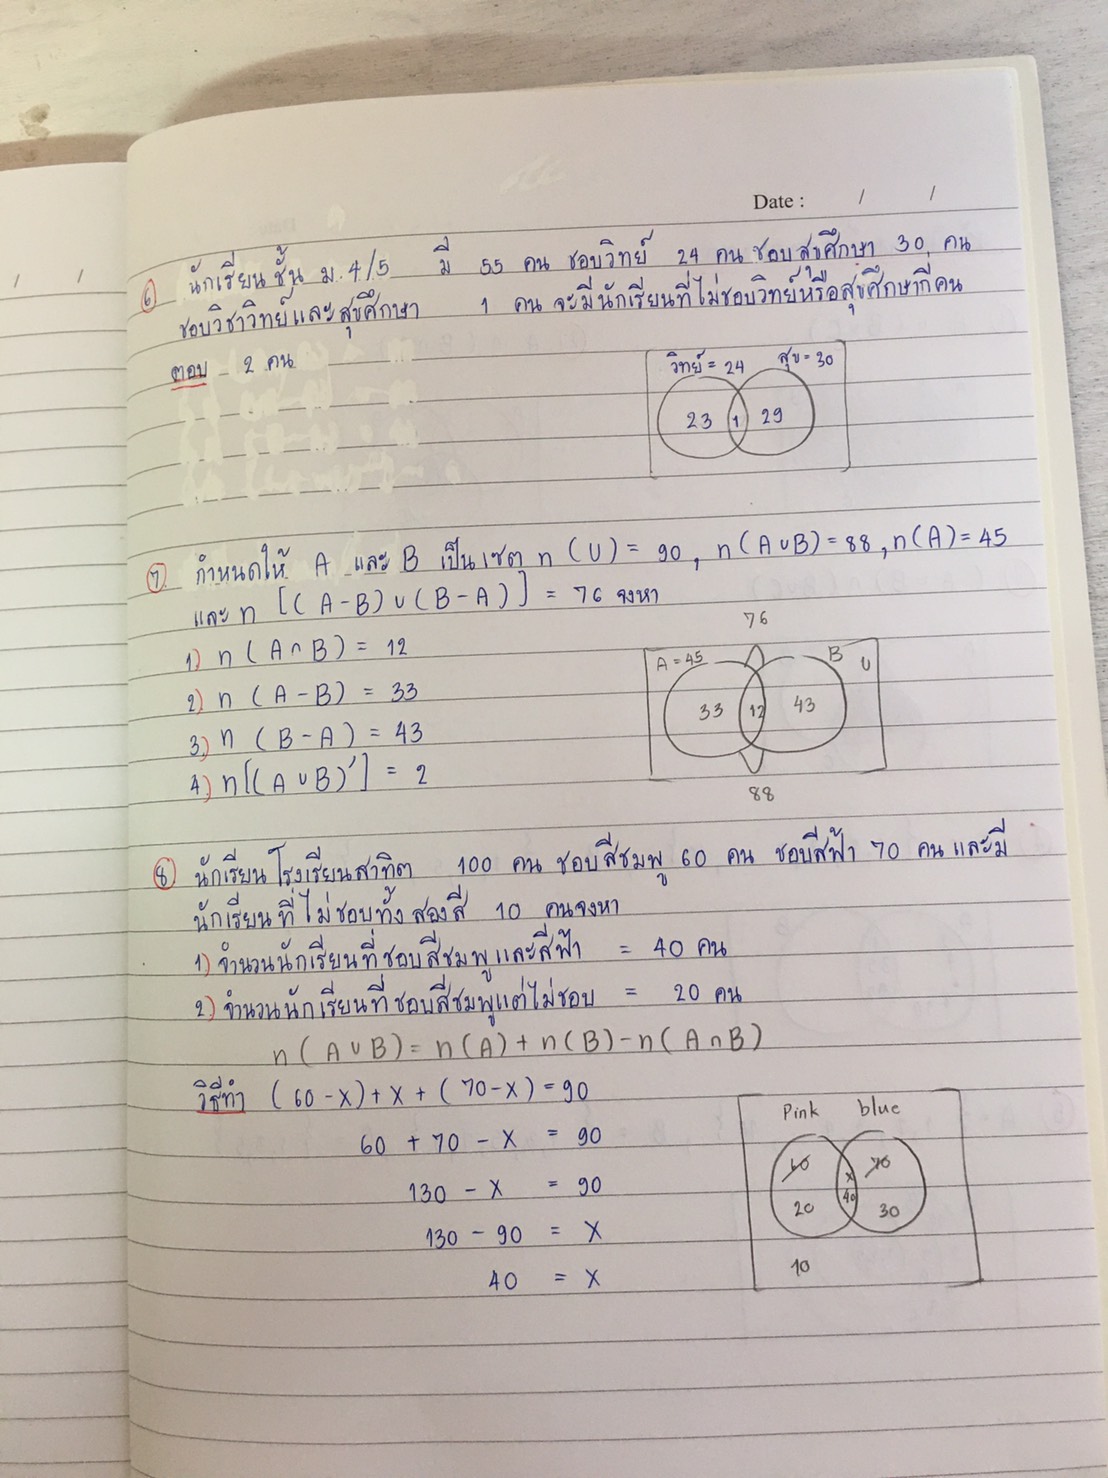 Date : / /
⑥ นักเรียนชั้น ม.4/5 มี 55 คน ชอบวิทย์ 24 คน ชอบสุขศึกษา 30 คน
ชอบวิชาวิทย์และสุขศึกษา 1 คน จะมีนักเรียนที่ไม่ชอบวิทย์หรือสุขศึกษากี่คน
ตอบ 2 คน
วิทย์ = 24 สุข = 30
23 1 29
⑦ กำหนดให้ A และ B เป็นเซต n (U) = 90, n(A∪B) = 88, n(A) = 45
และ n [(A-B)∪(B-A)] = 76 จงหา
1) n (A∩B) = 12
2) n (A-B) = 33
3) n (B-A) = 43
4) n[(A∪B)'] = 2
76
A = 45 B U
33 12 43
88
⑧ นักเรียนโรงเรียนสาทิต 100 คน ชอบสีชมพู 60 คน ชอบสีฟ้า 70 คน และมี
นักเรียนที่ไม่ชอบทั้งสองสี 10 คนจงหา
1) จำนวนนักเรียนที่ชอบสีชมพูและสีฟ้า = 40 คน
2) จำนวนนักเรียนที่ชอบสีชมพูแต่ไม่ชอบ = 20 คน
n (A∪B) = n(A) + n(B) - n(A∩B)
วิธีทำ (60-x) + x + (70-x) = 90
60 + 70 - x = 90
130 - x = 90
130 - 90 = x
40 = x
Pink blue
60 x 70
20 40 30
10